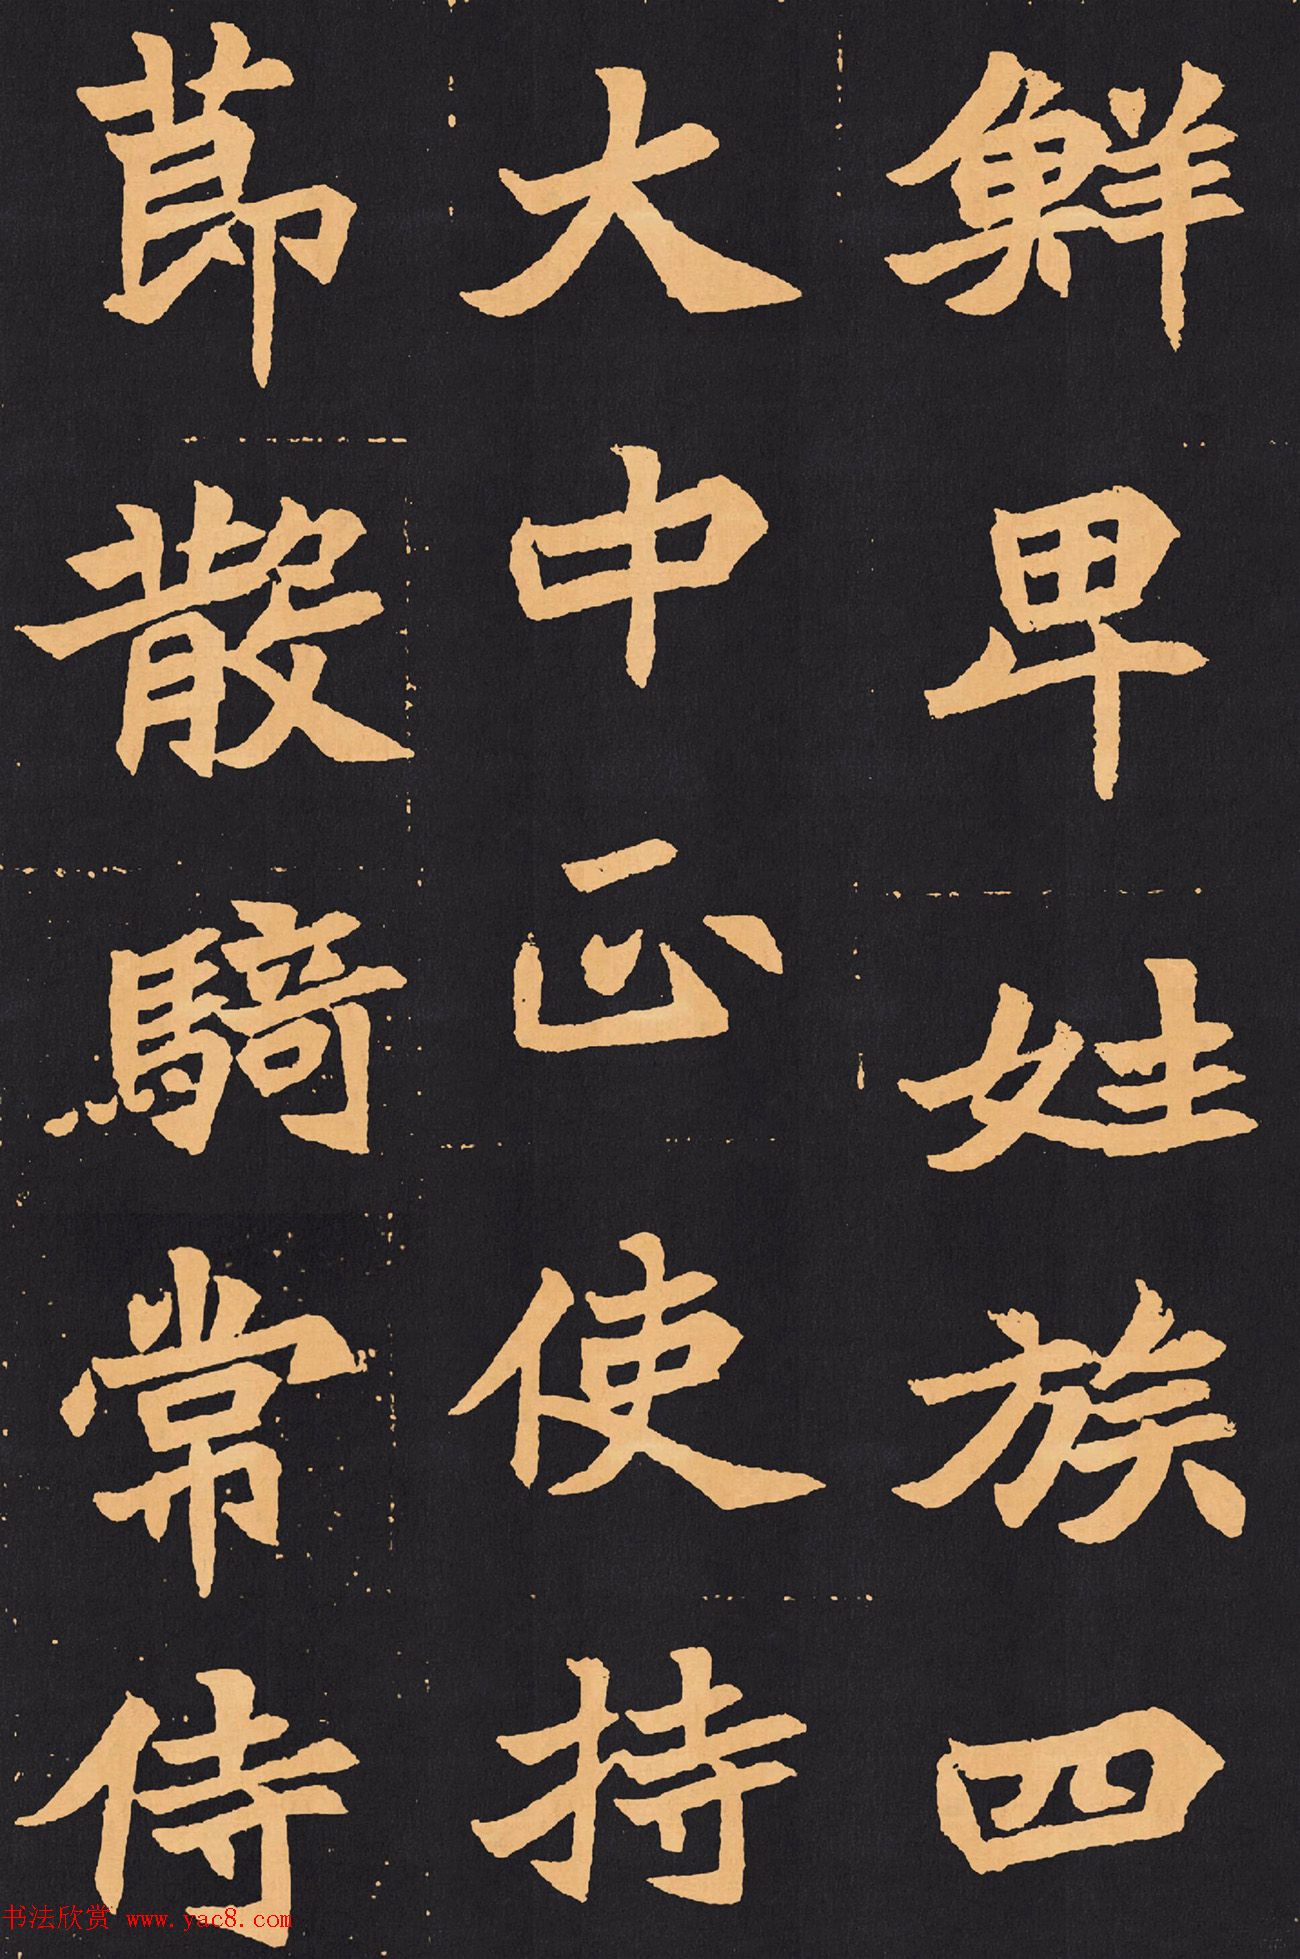 鮮卑姓族四
大中正使持
莭散騎常侍
书法欣赏 www.yac8.com